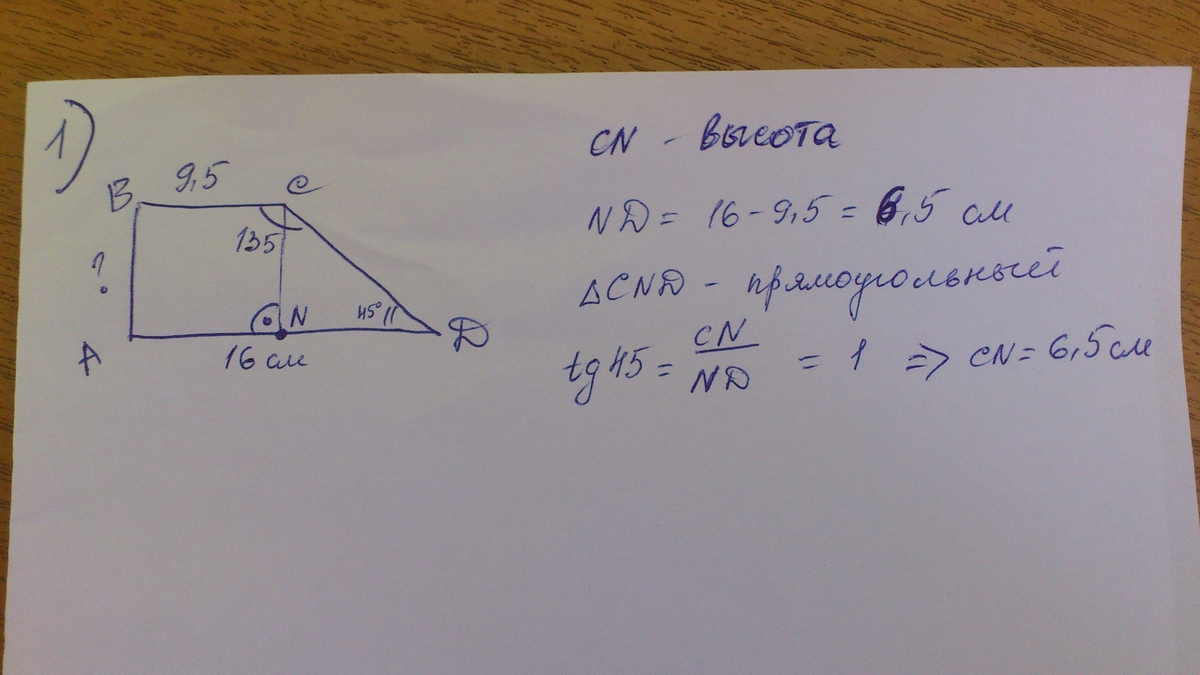 1)
B 9,5 C
135
?
N 45°
A 16 см D
CN - высота
ND = 16 - 9,5 = 6,5 см
△CND - прямоугольный
tg 45 = CN/ND = 1 => CN = 6,5 см